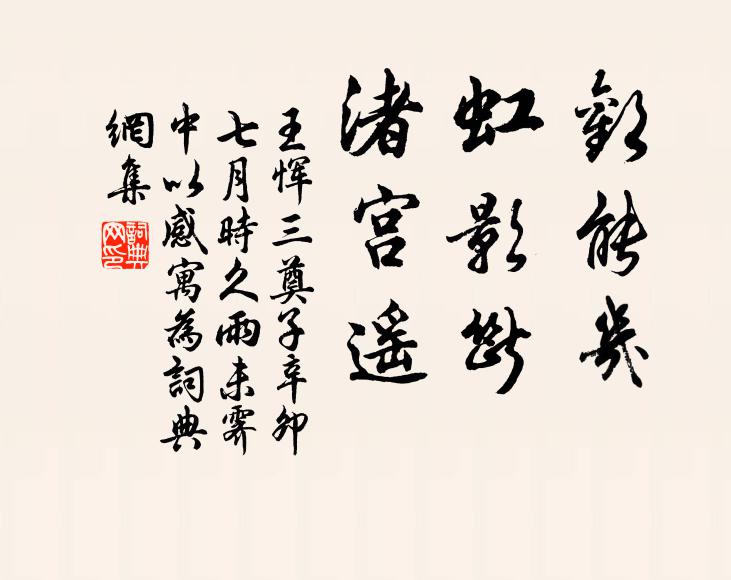 歡能幾
虹影斷
渚宮遥
王惲三奠子辛卯
七月時久雨未霽
中以感寓為詞典
網集
詞典網印